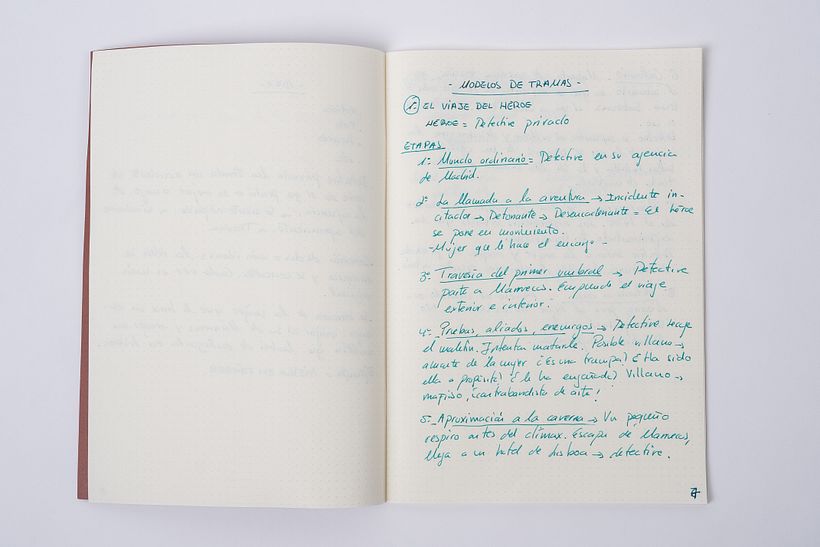 - MODELOS DE TRAMAS -
1. EL VIAJE DEL HÉROE
HÉROE = Detective privado
ETAPAS
1ª Mundo ordinario = Detective en su agencia
de Madrid.
2ª La llamada a la aventura → Incidente in-
citador → Detonante → Desencadenante = El héroe
se pone en movimiento.
- Mujer que le hace el encargo -
3ª Travesía del primer umbral → Detective
parte a Marruecos. Emprende el viaje
exterior e interior.
4ª- Pruebas, aliados, enemigos → Detective recoge
el maletín. Intentan matarle. Posible villano →
amante de la mujer ¿Es una trampa? ¿Ha sido
ella a propósito? ¿Le ha engañado? Villano →
mafioso, ¡contrabandista de arte!
5ª- Aproximación a la caverna → Un pequeño
respiro antes del clímax. Escapa de Marruecos,
llega a un hotel de Lisboa → detective.